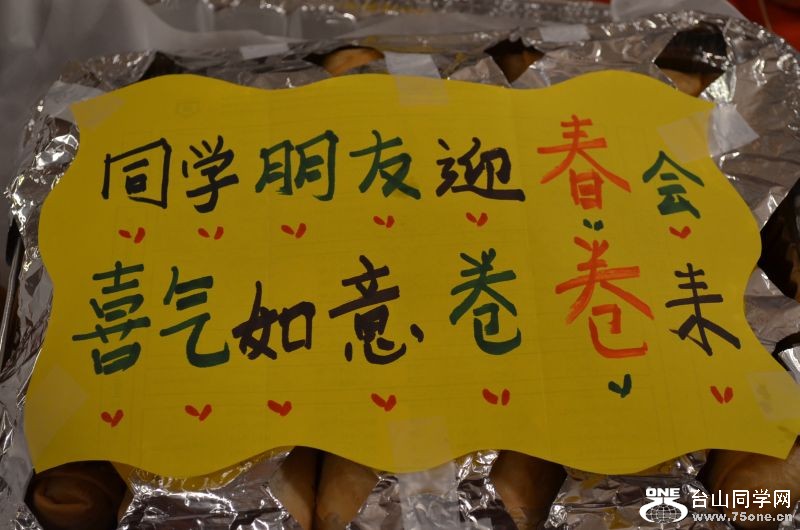 同学朋友迎春会
喜气如意卷卷来
ONE 台山同学网
www.75one.cn